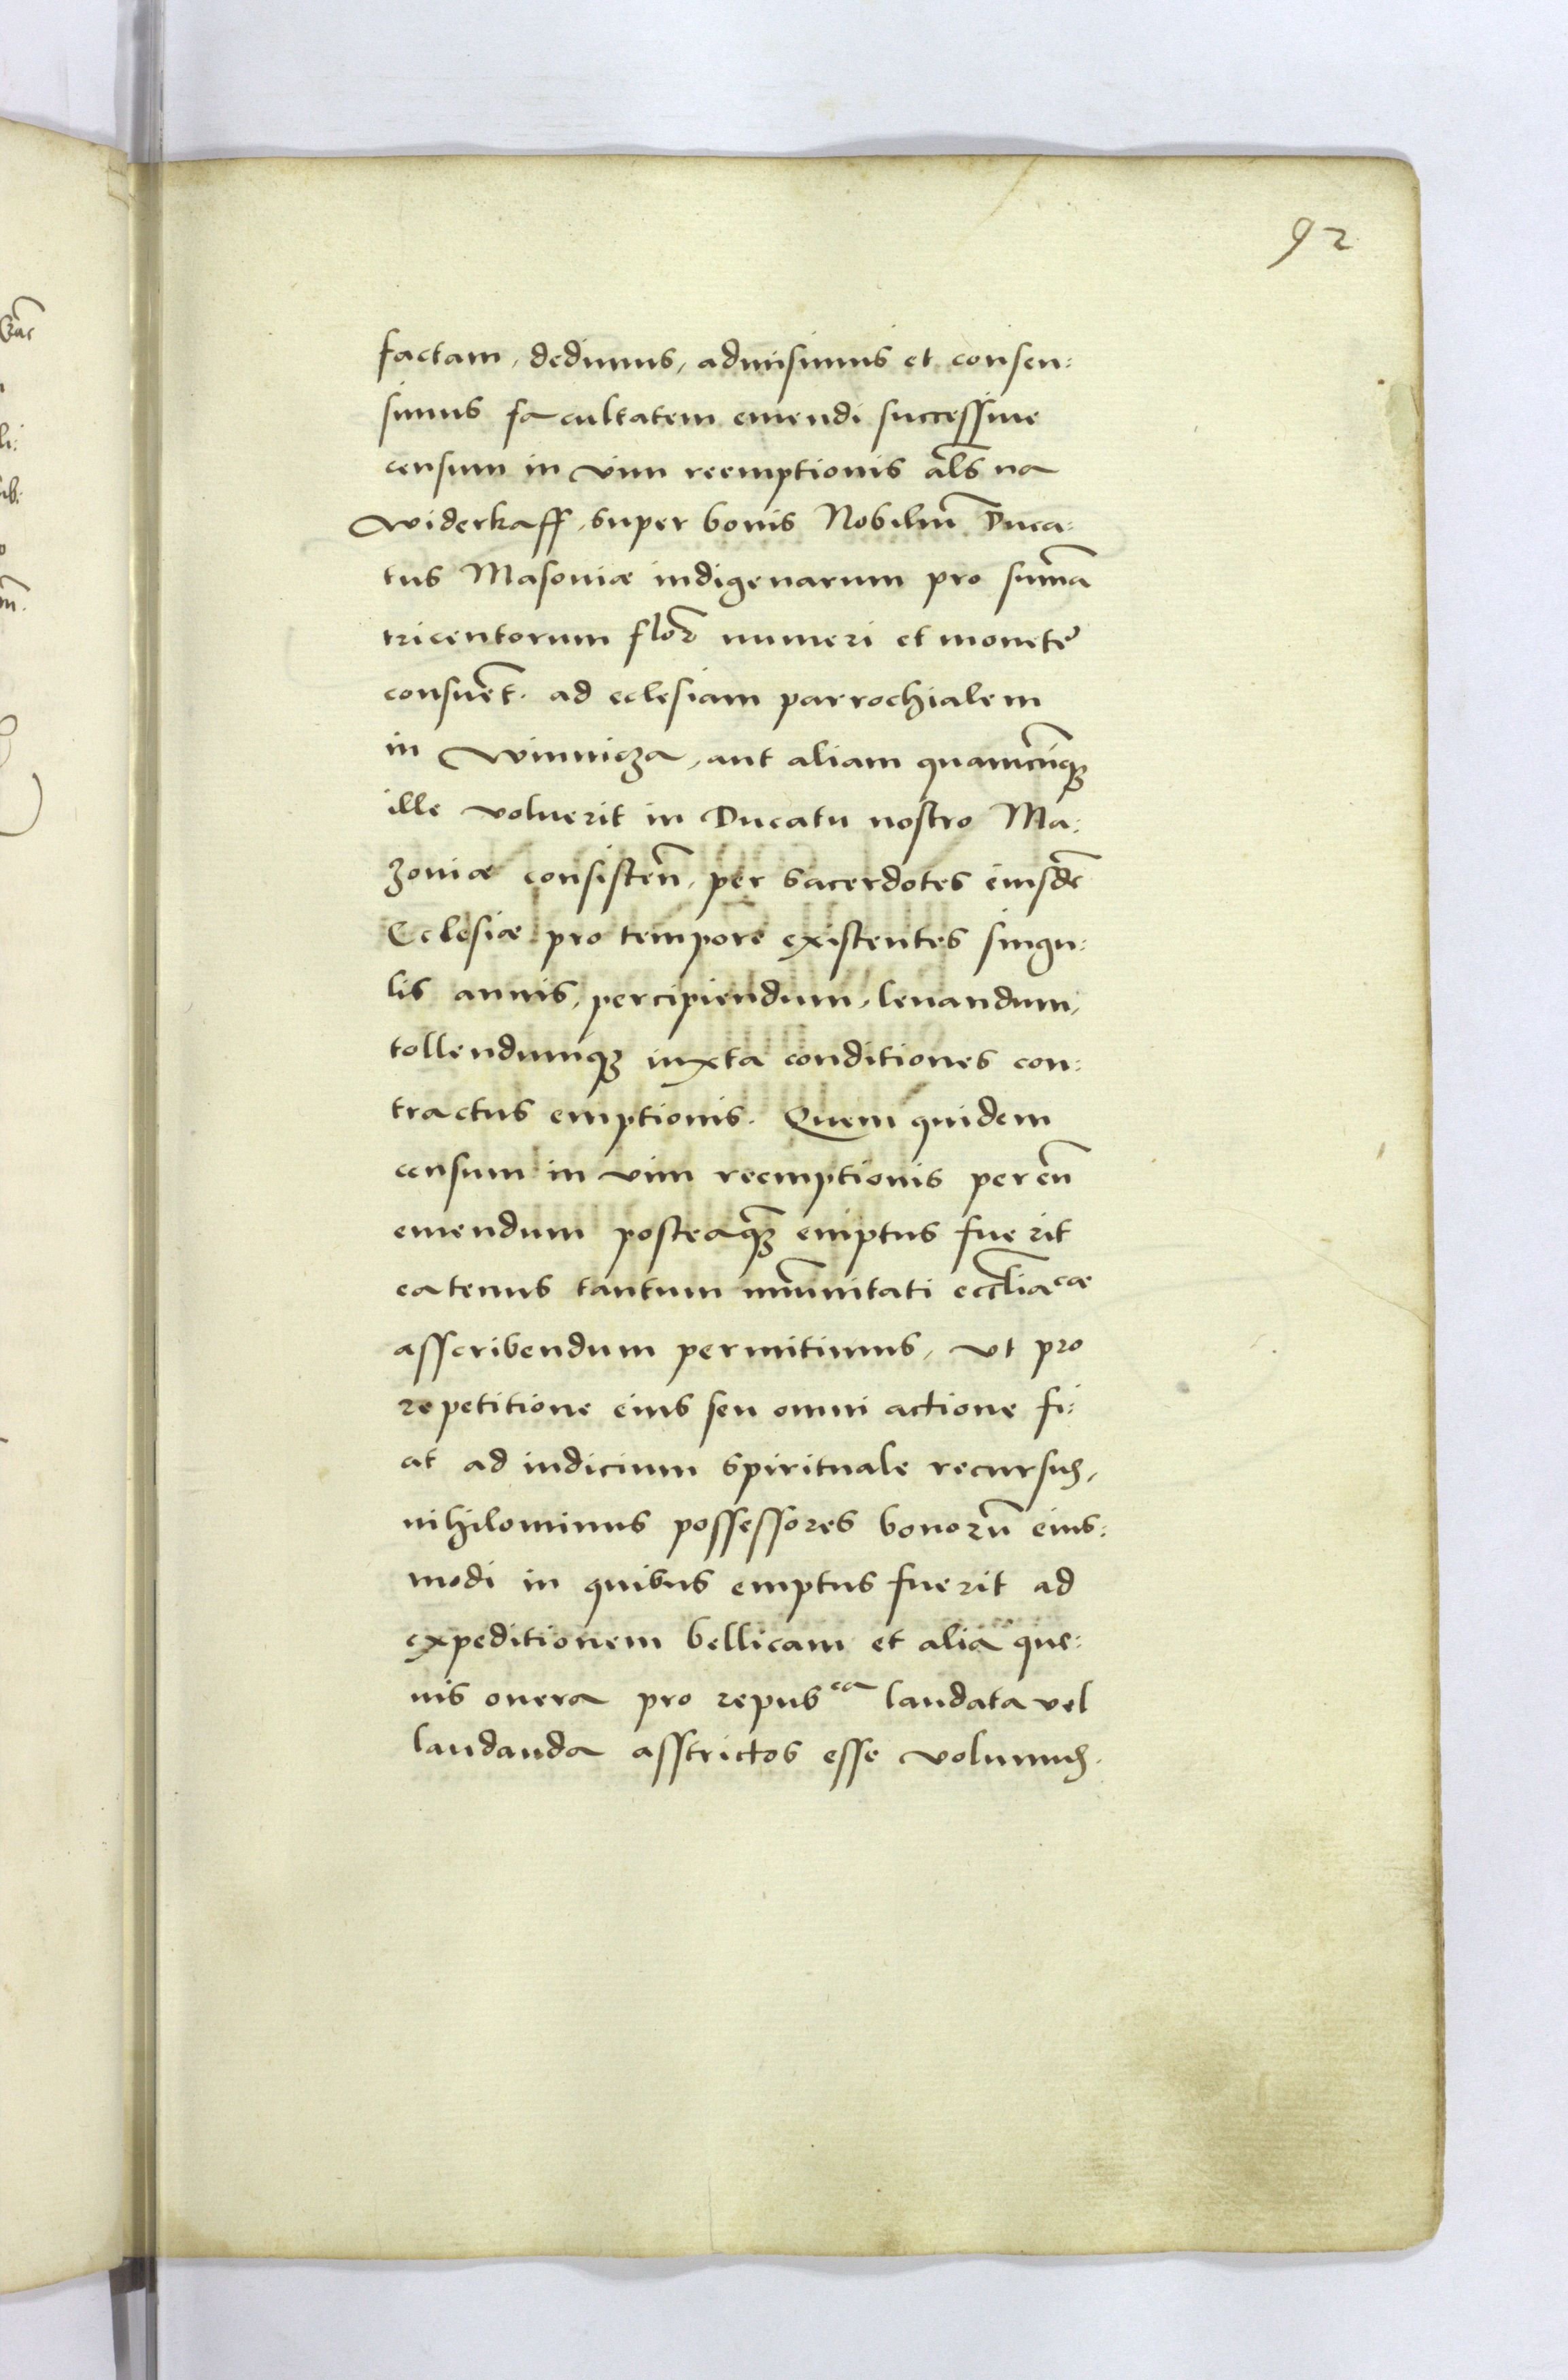 92
factam, dedimus, admisimus et consen:
simus facultatem emendi successiue
censum in vim reemptionis al̃s na
widerkaff, super bonis Nobiliũ Duca:
tus Masoniæ indigenarum pro sum̃a
tricentorum flor̃ numeri et monetę
consuet̃. ad eclesiam parrochialem
in Winnicza, aut aliam quamcũqꝫ
ille voluerit in Ducatu nostro Ma:
zoniæ consisteñ, per sacerdotes eiusdẽ
Eclesiæ pro tempore existentes singu:
lis annis, percipiendum, leuandum,
tollendumqꝫ iuxta conditiones con:
tractus emptionis. Quem quidem
censum in vim reemptionis per eũ
emendum posteaqꝫ̃ emptus fuerit
eatenus tantum im̃unitati eccl̃iacæ
asscribendum permitimus, vt pro
repetitione eius seu omni actione fi:
at ad iudicium spirituale recursus,
nihilominus possessores bonorũ eius:
modi in quibus emptus fuerit ad
expeditionem bellicam et alia que:
uis onera pro repub^ca laudata vel
laudanda asstrictos esse volumus.